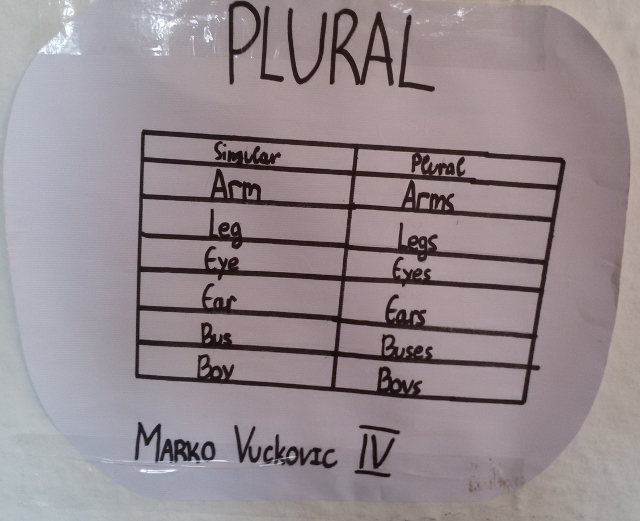 PLURAL
Singular Plural
Arm Arms
Leg Legs
Eye Eyes
Ear Ears
Bus Buses
Boy Boys
MARKO VUCKOVIC IV